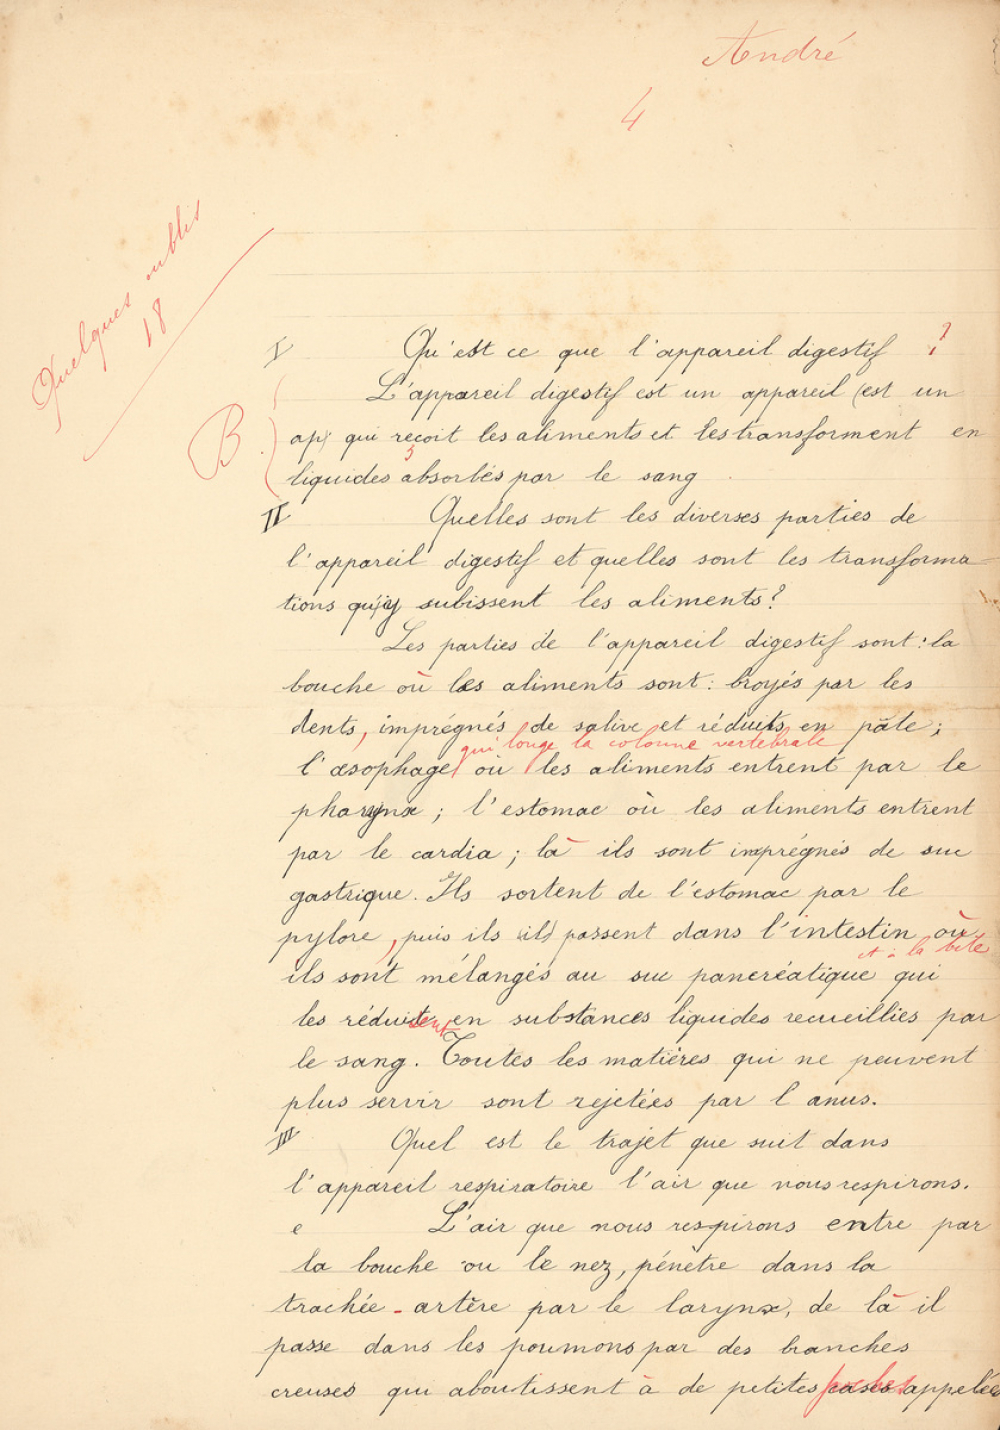 André
4
Quelques oublis
18
B
I Qu'est ce que l'appareil digestif ?
L'appareil digestif est un appareil (est un
ap) qui reçoit les aliments et les transforment en
liquides absorbés par le sang
II Quelles sont les diverses parties de
l'appareil digestif et quelles sont les transforma-
tions qu'y subissent les aliments?
Les parties de l'appareil digestif sont : la
bouche où les aliments sont : broyés par les
dents, imprégnés de salive et réduits en pâte ;
qui longe la colonne vertébrale
l'œsophage où les aliments entrent par le
pharynx ; l'estomac où les aliments entrent
par le cardia ; là ils sont imprégnés de suc
gastrique. Ils sortent de l'estomac par le
pylore, puis ils (ils) passent dans l'intestin où
et à la bile
ils sont mélangés au suc pancréatique qui
les réduisent en substances liquides recueillies par
le sang. Toutes les matières qui ne peuvent
plus servir sont rejetées par l anus.
III Quel est le trajet que suit dans
l'appareil respiratoire l'air que nous respirons.
e L'air que nous respirons entre par
la bouche ou le nez, pénètre dans la
trachée-artère par le larynx, de là il
passe dans les poumons par des branches
creuses qui aboutissent à de petites poches appelées